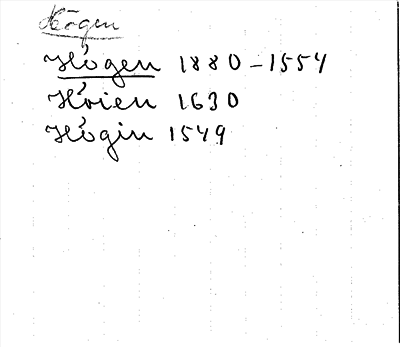 Högen
Hógen 1880-1554
Hóien 1630
Hógin 1549